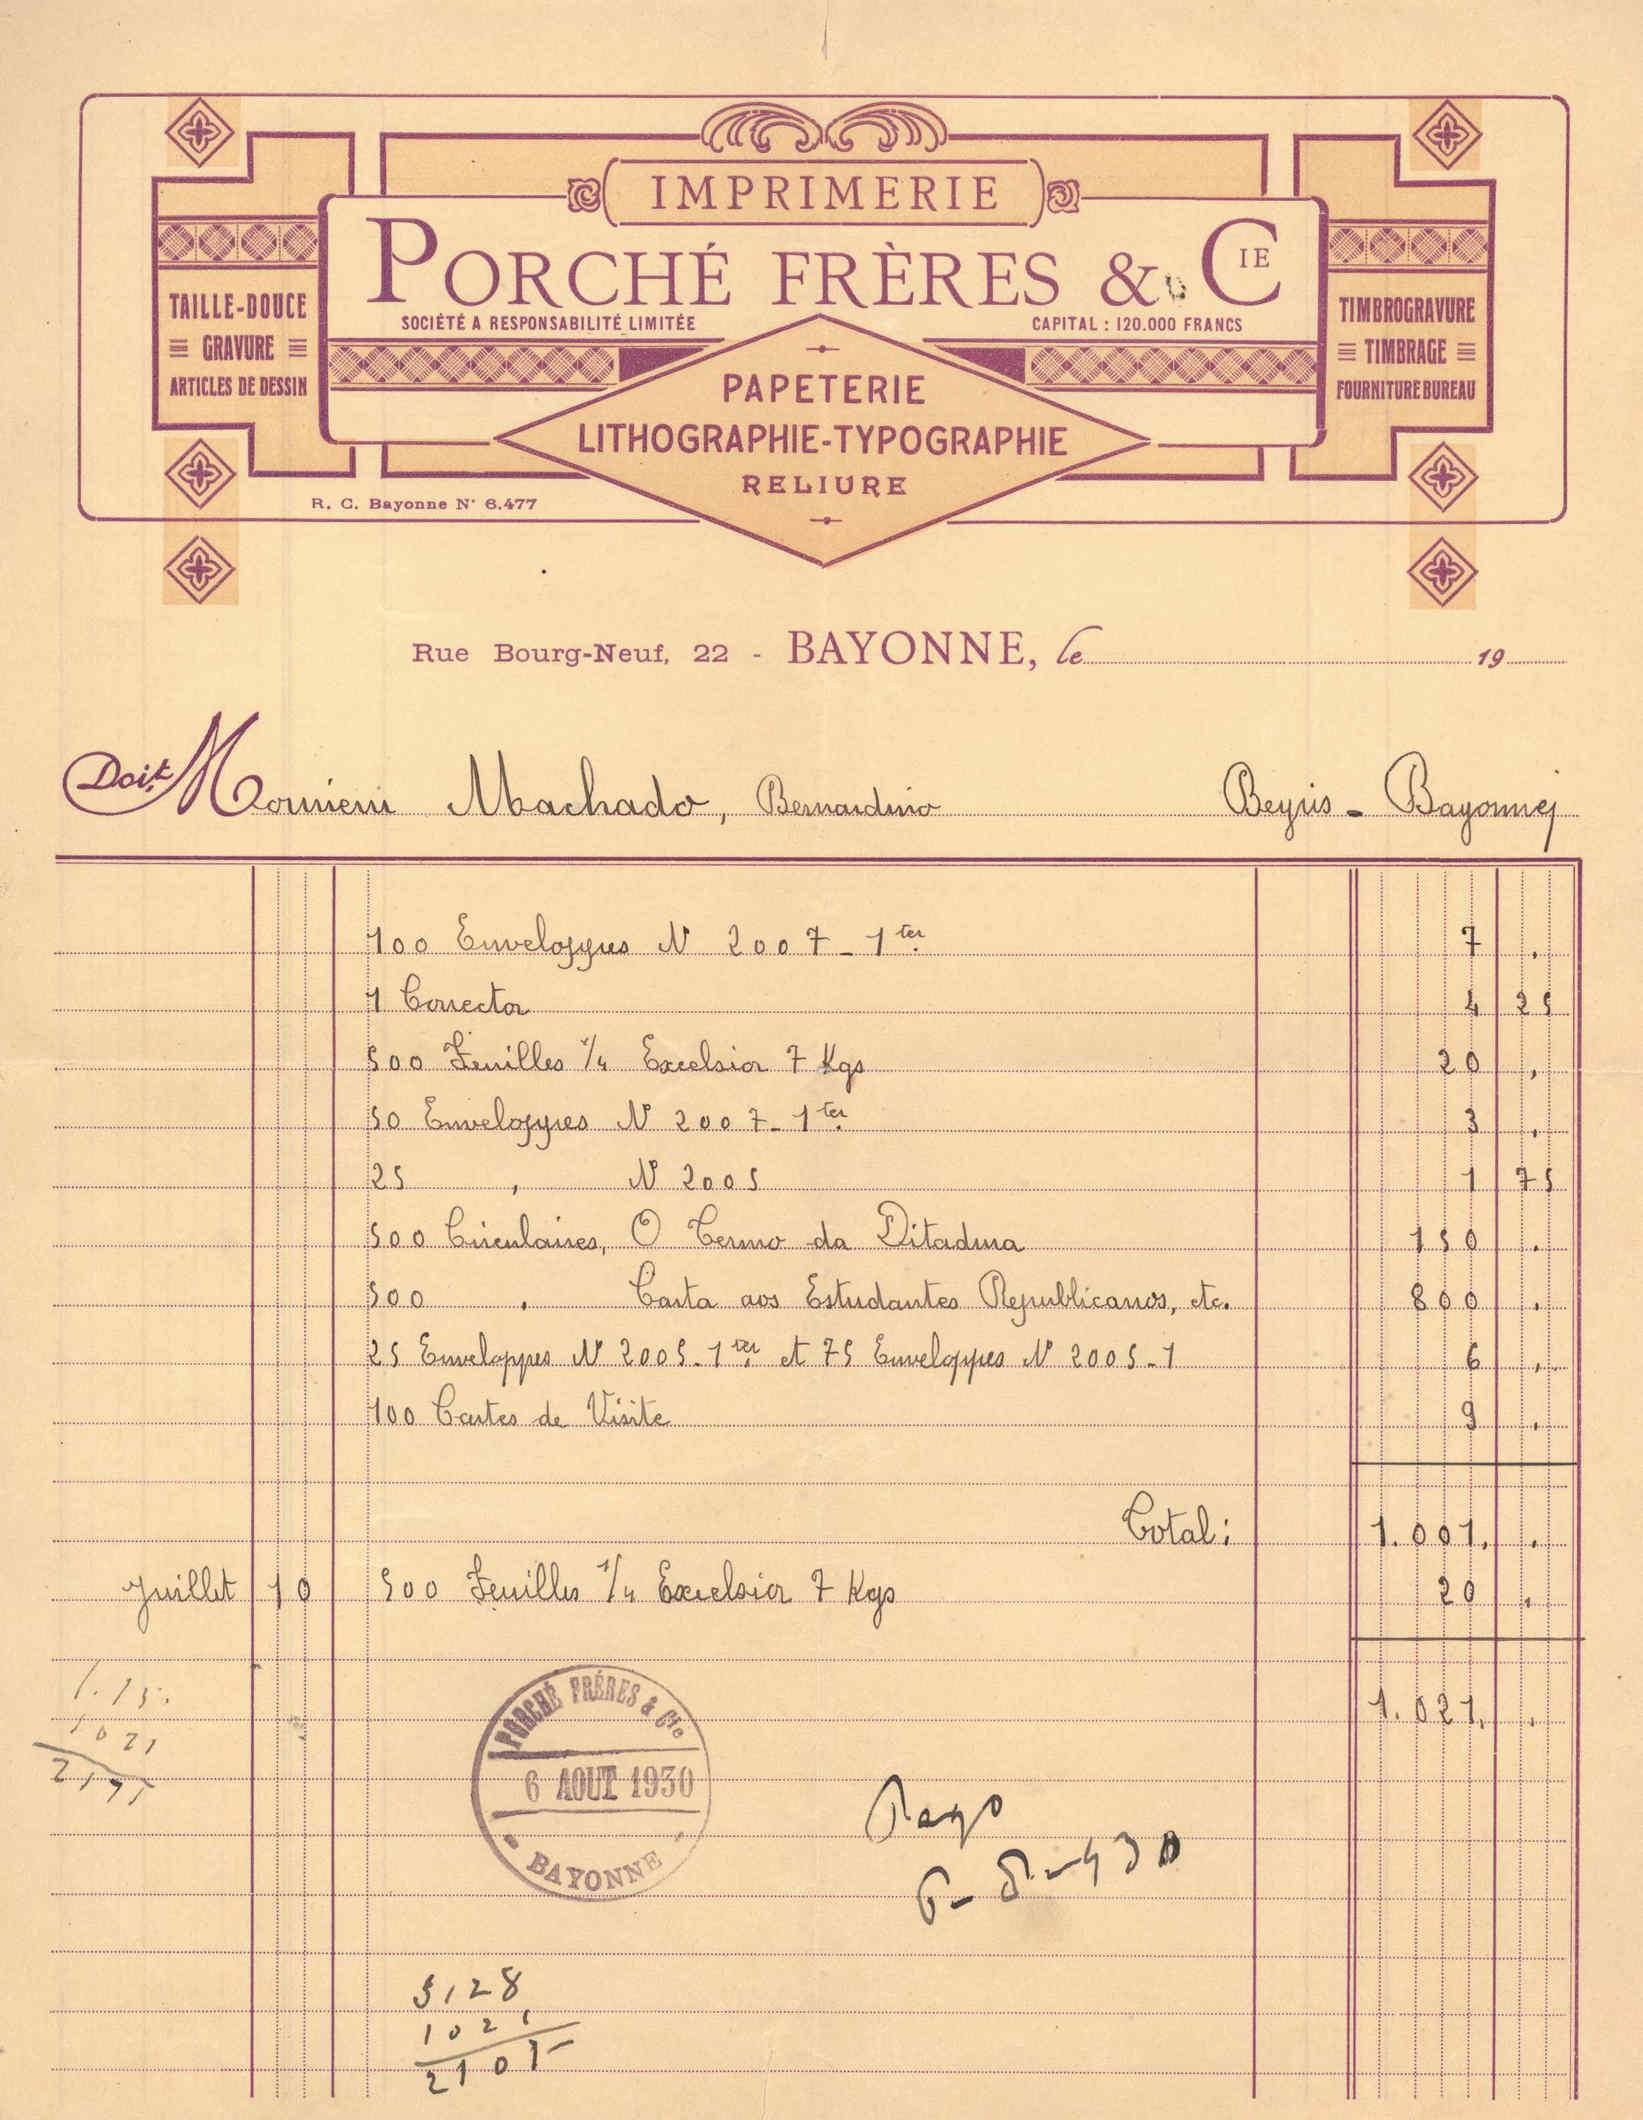 IMPRIMERIE
PORCHÉ FRÈRES & CIE
SOCIÉTÉ A RESPONSABILITÉ LIMITÉE
CAPITAL : 120.000 FRANCS
TAILLE-DOUCE
GRAVURE
ARTICLES DE DESSIN
TIMBROGRAVURE
TIMBRAGE
FOURNITURE BUREAU
PAPETERIE
LITHOGRAPHIE-TYPOGRAPHIE
RELIURE
R. C. Bayonne N° 6.477
Rue Bourg-Neuf, 22 - BAYONNE, le 19
Doit Monsieur Machado, Bernardino Beyris - Bayonne
100 Enveloppes N° 2007-1 ter. 7 .
1 Corrector 4 25
500 Feuilles 1/4 Excelsior 7 Kgs 20 .
50 Enveloppes N° 2007-1 ter. 3 .
25 , N° 2005 1 75
500 Circulaires, O Termo da Ditadura 150 .
500 . Carta aos Estudantes Republicanos, etc. 800 .
25 Enveloppes N° 2005-1 ter et 75 Enveloppes N° 2005-1 6 .
100 Cartes de Visite 9 .
Total: 1.001, .
Juillet 10 500 Feuilles 1/4 Excelsior 7 Kgs 20 .
1.021, .
1021
PORCHÉ FRÉRES & Cie
6 AOUT 1930
BAYONNE
Pago
1021